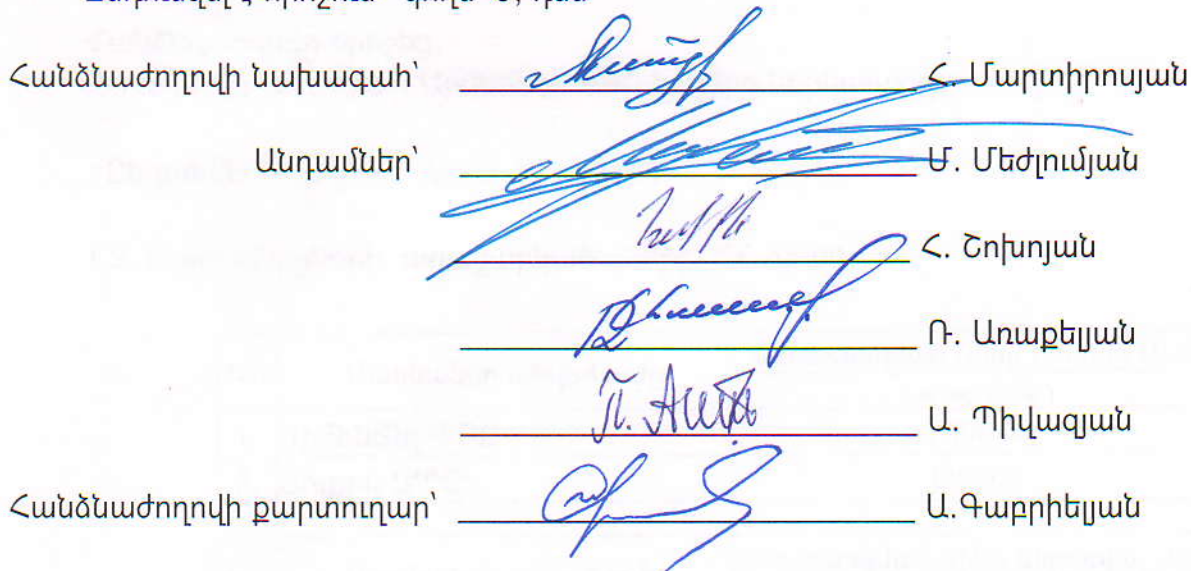 Հանձնաժողովի նախագահ՝ Հ. Մարտիրոսյան
Անդամներ՝ Մ. Մեժլումյան
Հ. Շոխոյան
Ռ. Առաքելյան
Ա. Պիվազյան
Հանձնաժողովի քարտուղար՝ Ա.Գաբրիելյան